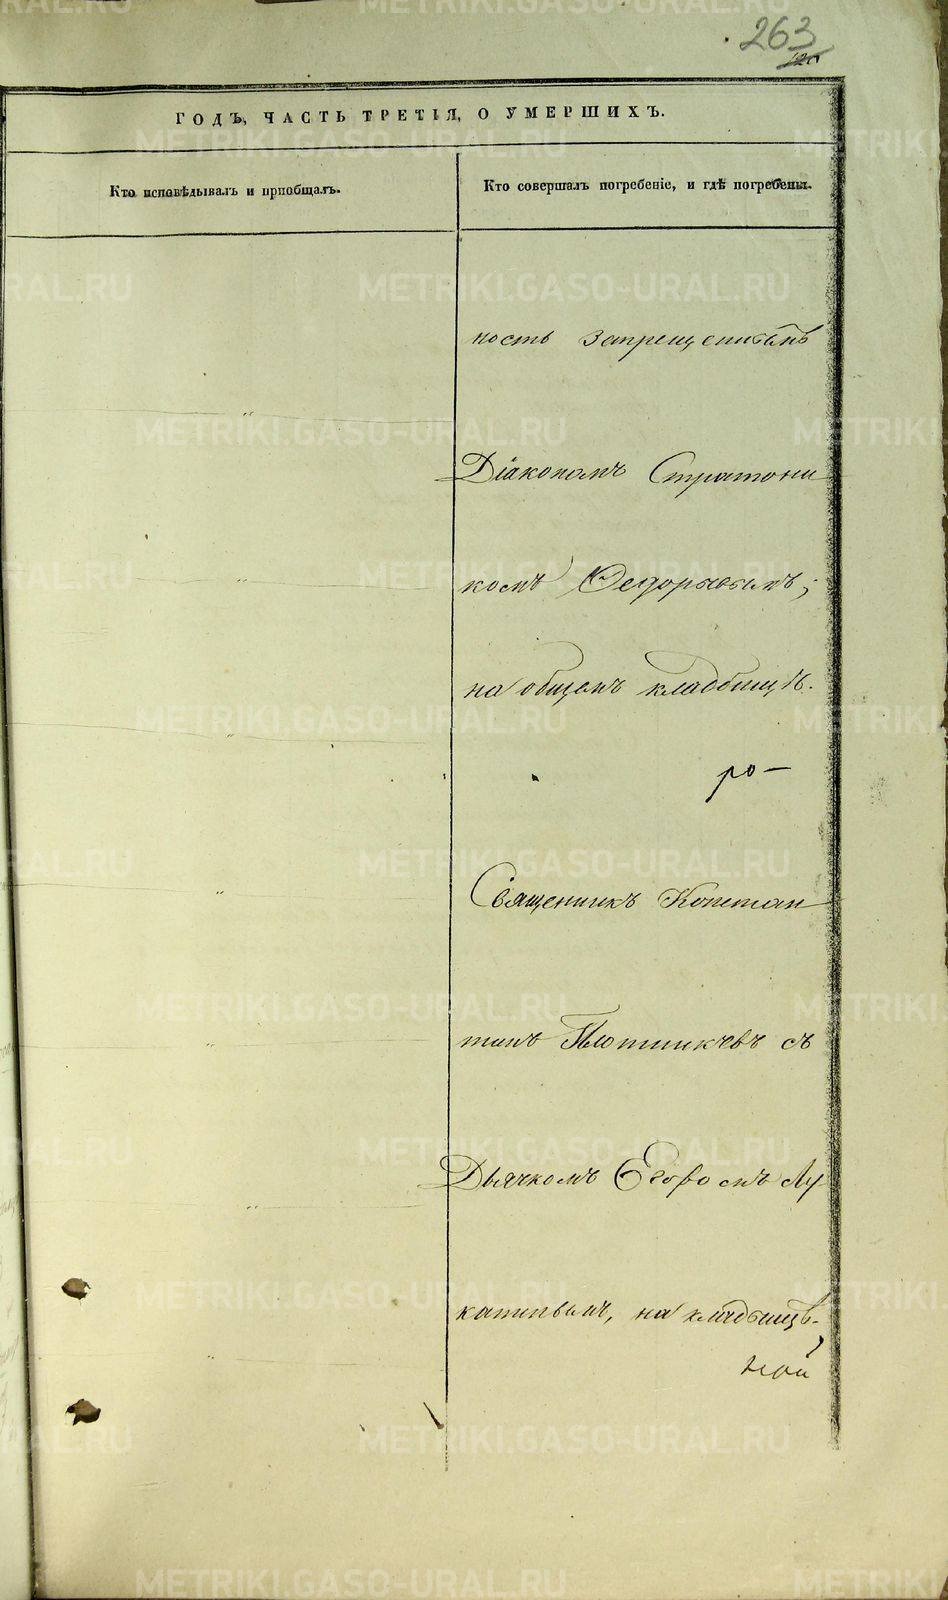 263
ГОДЪ, ЧАСТЬ ТРЕТІЯ, О УМЕРШИХЪ.
Кто исповѣдывалъ и пріобщалъ.
Кто совершалъ погребеніе, и гдѣ погребены.
ность запрещеннымъ
Діакономъ Стратони
комъ Ѳедоровымъ;
на общемъ кладбищѣ.
ро-
Священникъ Констан
тинъ Плотниковъ съ
Дьячкомъ Егоромъ Лу
канинымъ, на кладбищѣ.
METRIKI.GASO-URAL.RU